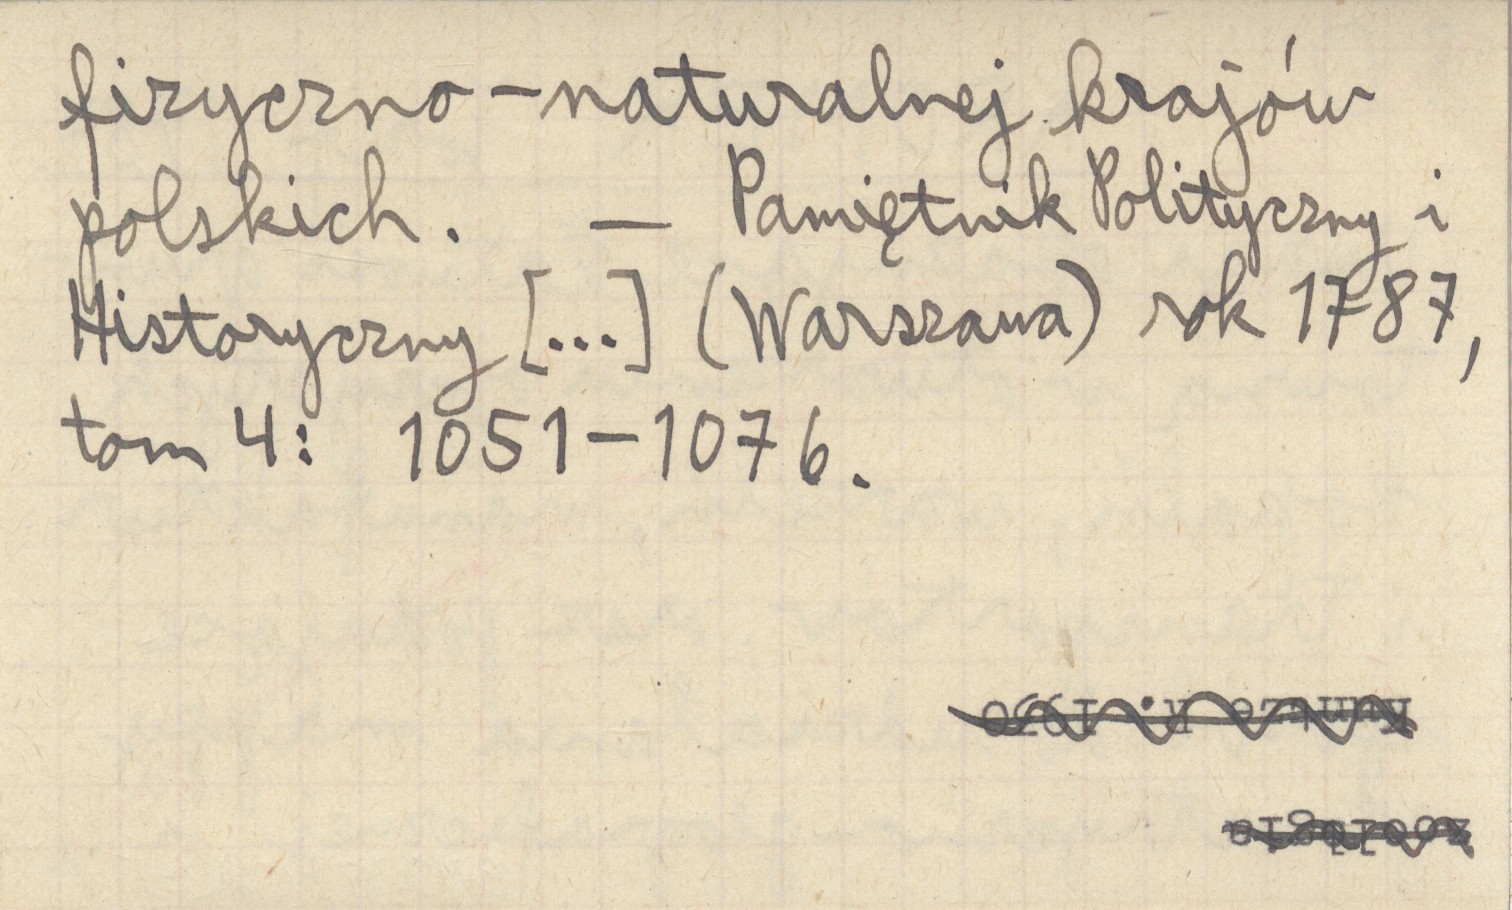 fizyczno-naturalnej krajów
polskich. — Pamiętnik Polityczny i
Historyczny [...] (Warszawa) rok 1787,
tom 4: 1051-1076.
Kuntze R. 1930
zoologia